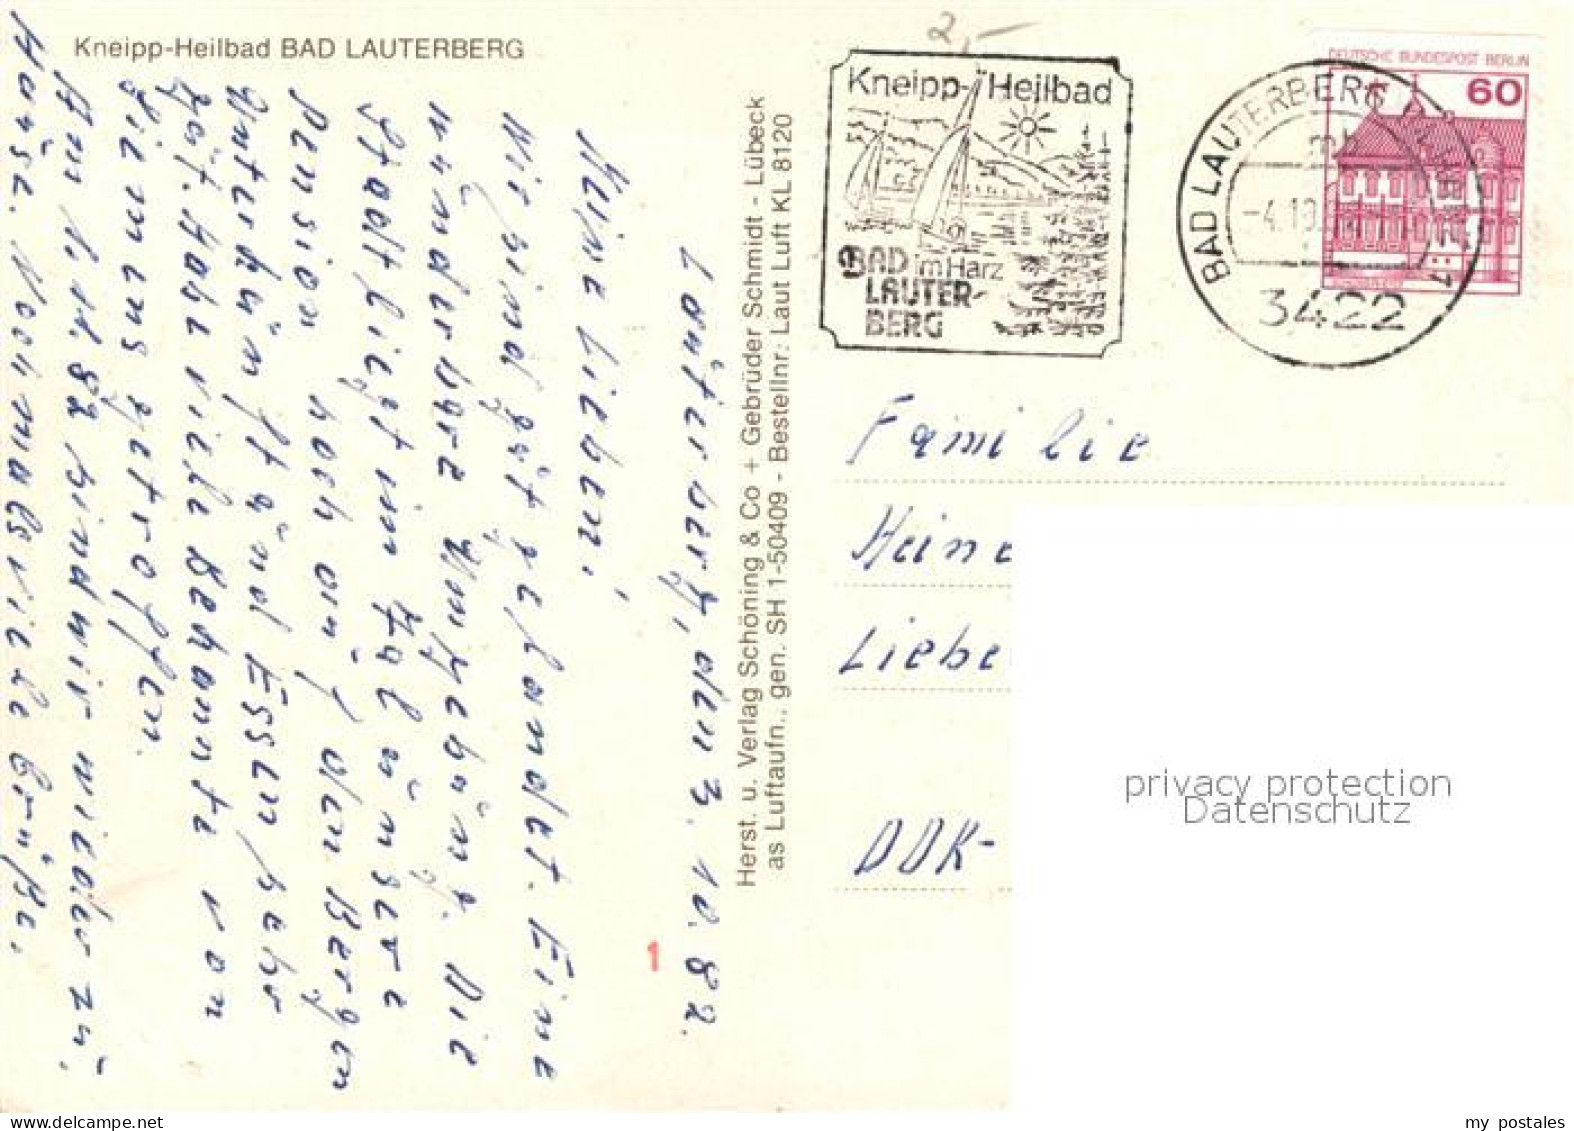 Kneipp-Heilbad BAD LAUTERBERG
2,-
Kneipp-Heilbad
BAD im Harz
LAUTER-
BERG
DEUTSCHE BUNDESPOST BERLIN
60
BAD LAUTERBERG
-4.10.
3422
Lauterberg, den 3.10.82.
Meine Lieben!
Wir sind gut gelandet. Eine
wunderbare Umgebung. Die
Stadt liegt im Tal unsere
Pension hoch auf den Bergen
Unterkunft und Essen sehr
gut. Habe viele Bekannte von
Hiemus getroffen.
Am 11.10.82 sind wir wieder zu
Hause. Nochmals viele Grüße.
Herst. u. Verlag Schöning & Co + Gebrüder Schmidt - Lübeck
as Luftaufn., gen. SH 1-50409 - Bestellnr: Laut Luft KL 8120
1
Familie
Heine
Liebe
DDR-
privacy protection
Datenschutz
my postales